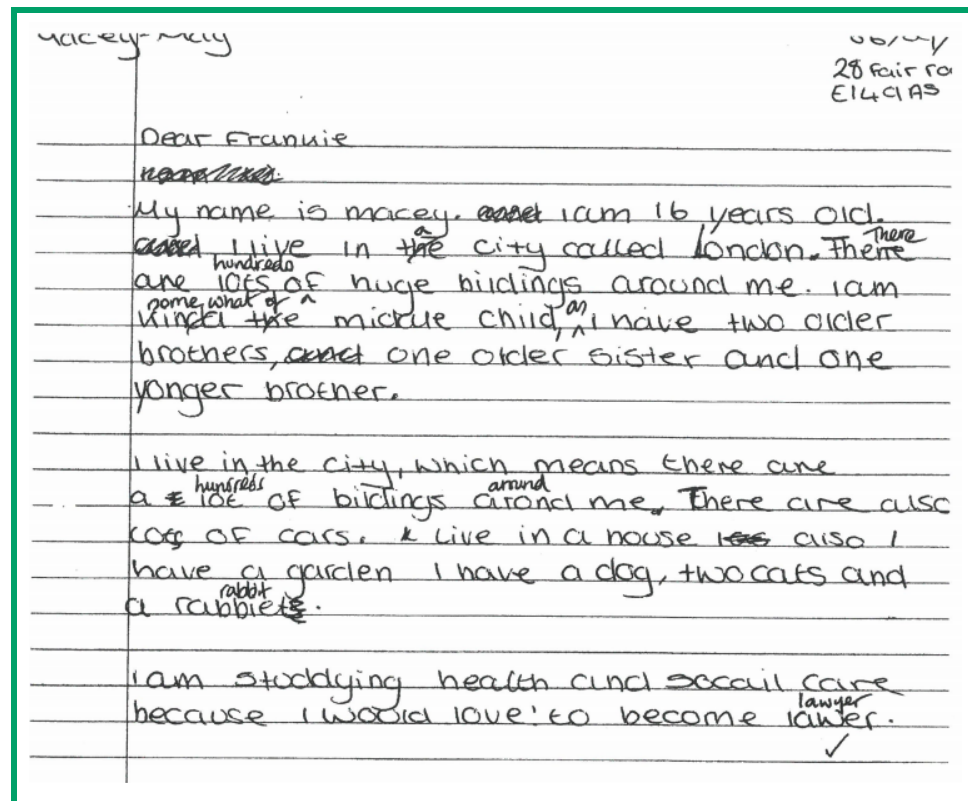 Macey-May
28 Fair ro
E14 9AS
Dear Frannie
My name is macey. I am 16 years old.
I live in the a city called London. There There
are lots hundreds of huge bildings around me. I am
kinda the some what of a middle child, as I have two older
brothers, and one older sister and one
yonger brother.
I live in the city, which means there are
a lot hundreds of bildings arond around me. There are also
lots of cars. I Live in a house also I
have a garden I have a dog, two cats and
a rabbiets rabbit.
I am studdying health and socail care
because I woould love to become lawer lawyer.